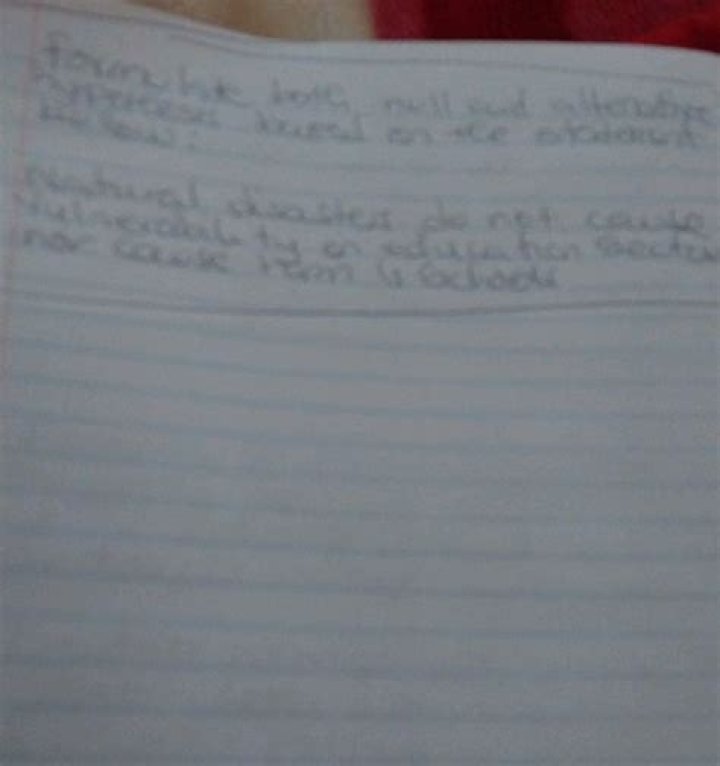 Formulate both null and alternative
hypothesis based on the statement
below:
Natural disasters do not cause
vulnerability on education sector
nor cause harm to schools